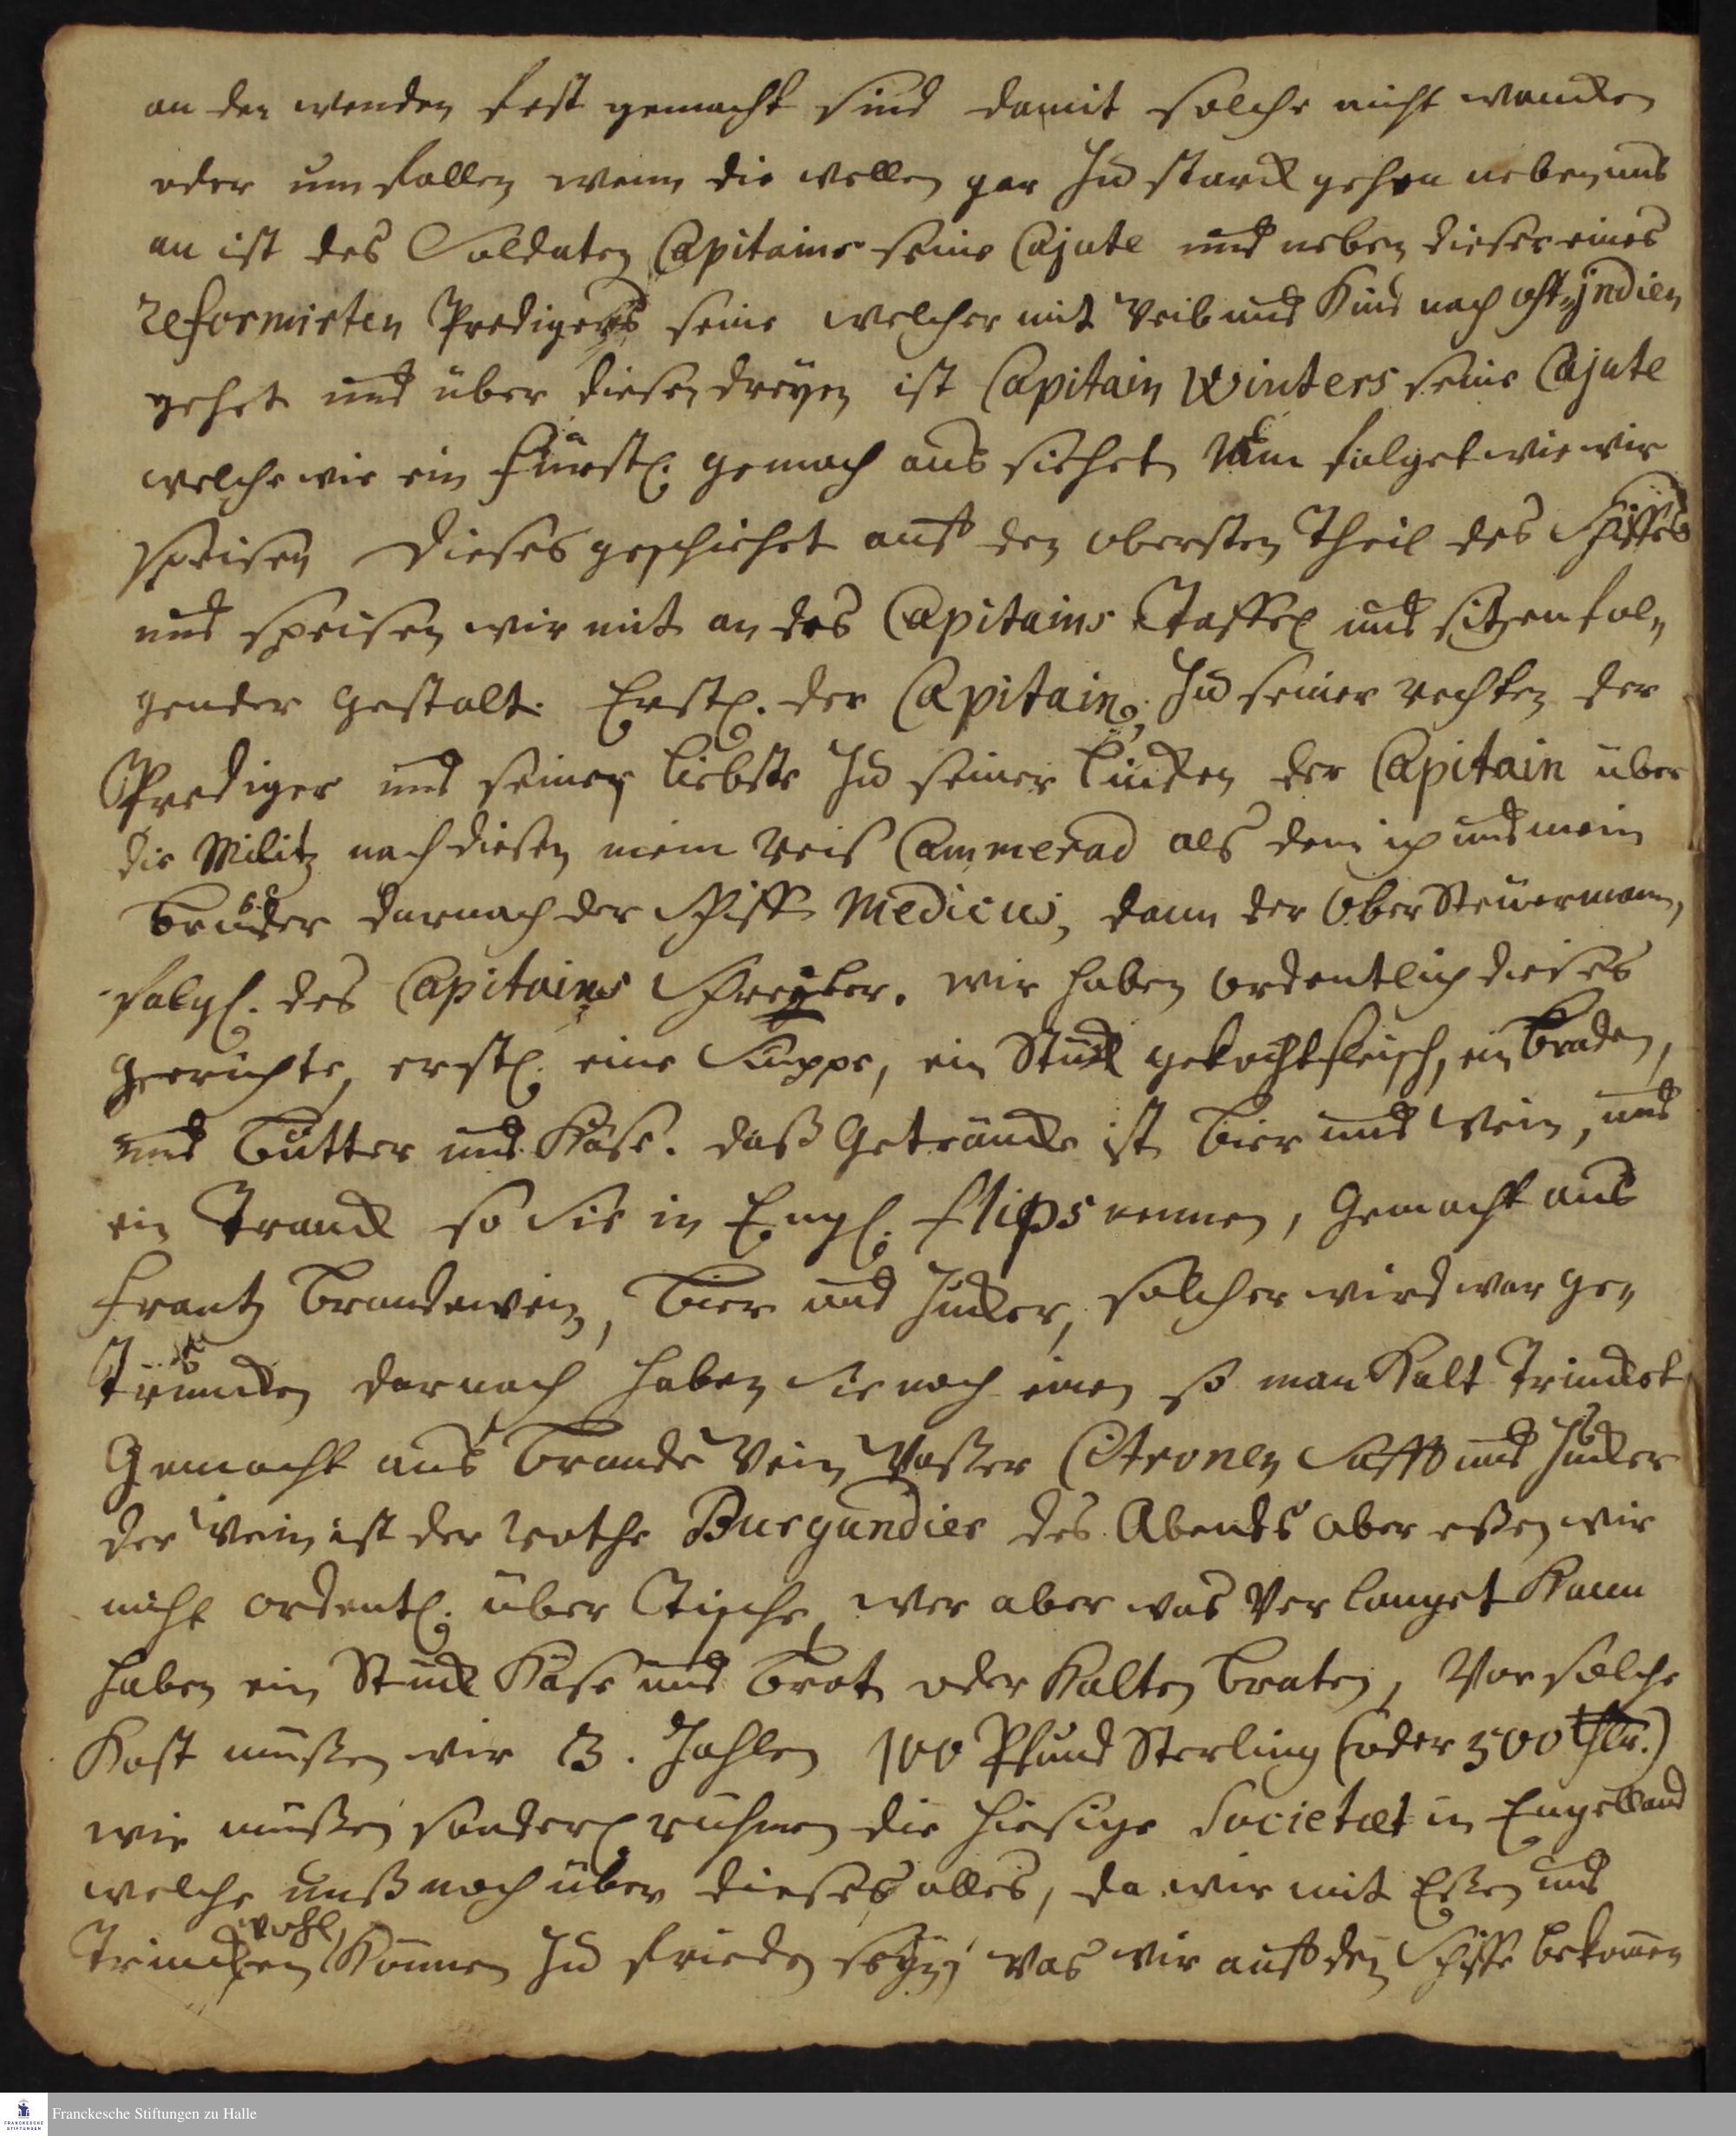 an den wenden fest gemacht sind damit solche nicht wancken
oder um fallen wenn die wellen gar zu starck gehen neben uns
an ist des Soldaten Capitains seine Cajute und neben dieser eines
reformirten Predigers seine welcher mit Weib und Kind nach Ost-Jndien
gehet und über diesen dreyen ist Capitain Winters seine Cajute
welche wie ein Fürstl. gemach aus siehet Nun folget wie wir
speisen dieses geschiehet auff den obersten Theil des Schiffes
und speisen wir mit an des Capitains Taffel und sitzen fol-
gender gestalt. Erstl. der Capitain, zu seiner rechten der
Prediger und seiner liebste zu seiner lincken der Capitain über
die Militz nach diesen mein Reis Cammerad als dem ich und mein
bruder darnach der Schiff Medicus, dann der Ober Steuermann,
folgl. des Capitains Schreyber. wir haben ordentlich dieses
gerichte, erstl. eine Suppe, ein Stück gekocht fleisch, ein braden,
und butter und Käse. daß Geträncke ist bier und Wein, und
ein Tranck so sie in Engl. flips nennen, Gemacht aus
Frantz brandewein, bier und Zucker, solcher wird war ge-
truncken darnach haben sie noch einen so man Kalt Trincket
Gemacht aus brande Wein Waßer Citronen Safft und Zucker
der Wein ist der rothe Burgundier des Abends aber eßen wir
nicht ordentl. über Tische, wer aber was Verlanget kann
haben ein Stück Käse und brot oder Kalten braten, Vor solche
Kost müßen wir 3. Zahlen 100 Pfund Sterling (oder 500 thlr.)
wir müßen sonderl rühmen die hiesige Societæt in Engelland
welche unß noch über dieses alles, da wir mit Eßen und
Trincken wohl Können zu frieden seyn, was wir auff den Schiffe bekomen
Franckesche Stiftungen zu Halle
FRANCKESCHE
STIFTUNGEN